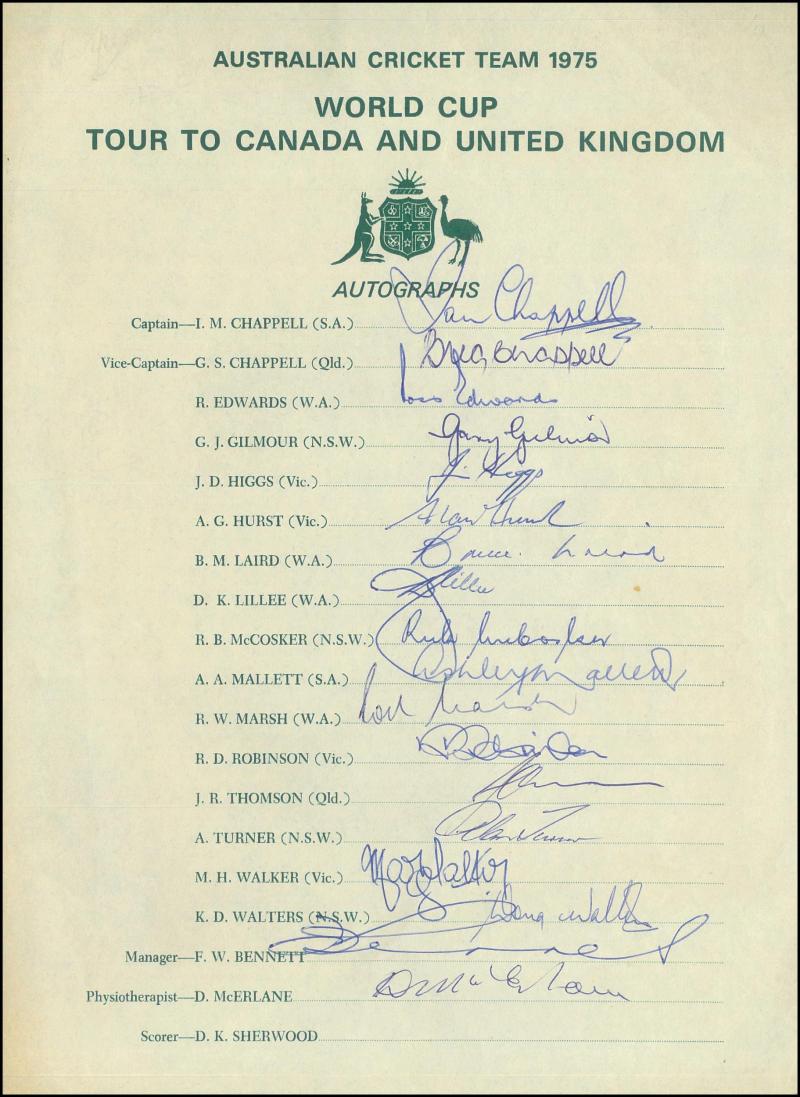 AUSTRALIAN CRICKET TEAM 1975
WORLD CUP
TOUR TO CANADA AND UNITED KINGDOM
AUTOGRAPHS
Captain—I. M. CHAPPELL (S.A.) Ian Chappell
Vice-Captain—G. S. CHAPPELL (Qld.) Greg Chappell
R. EDWARDS (W.A.) Ross Edwards
G. J. GILMOUR (N.S.W.) Gary Gilmour
J. D. HIGGS (Vic.) J. Higgs
A. G. HURST (Vic.) Alan Hurst
B. M. LAIRD (W.A.) Bruce Laird
D. K. LILLEE (W.A.) DLillee
R. B. McCOSKER (N.S.W.) Rick McCosker
A. A. MALLETT (S.A.) Ashley Mallett
R. W. MARSH (W.A.) Rod Marsh
R. D. ROBINSON (Vic.)
J. R. THOMSON (Qld.)
A. TURNER (N.S.W.) Alan Turner
M. H. WALKER (Vic.) Max Walker
K. D. WALTERS (N.S.W.) Doug Walters
Manager—F. W. BENNETT
Physiotherapist—D. McERLANE D McErlane
Scorer—D. K. SHERWOOD